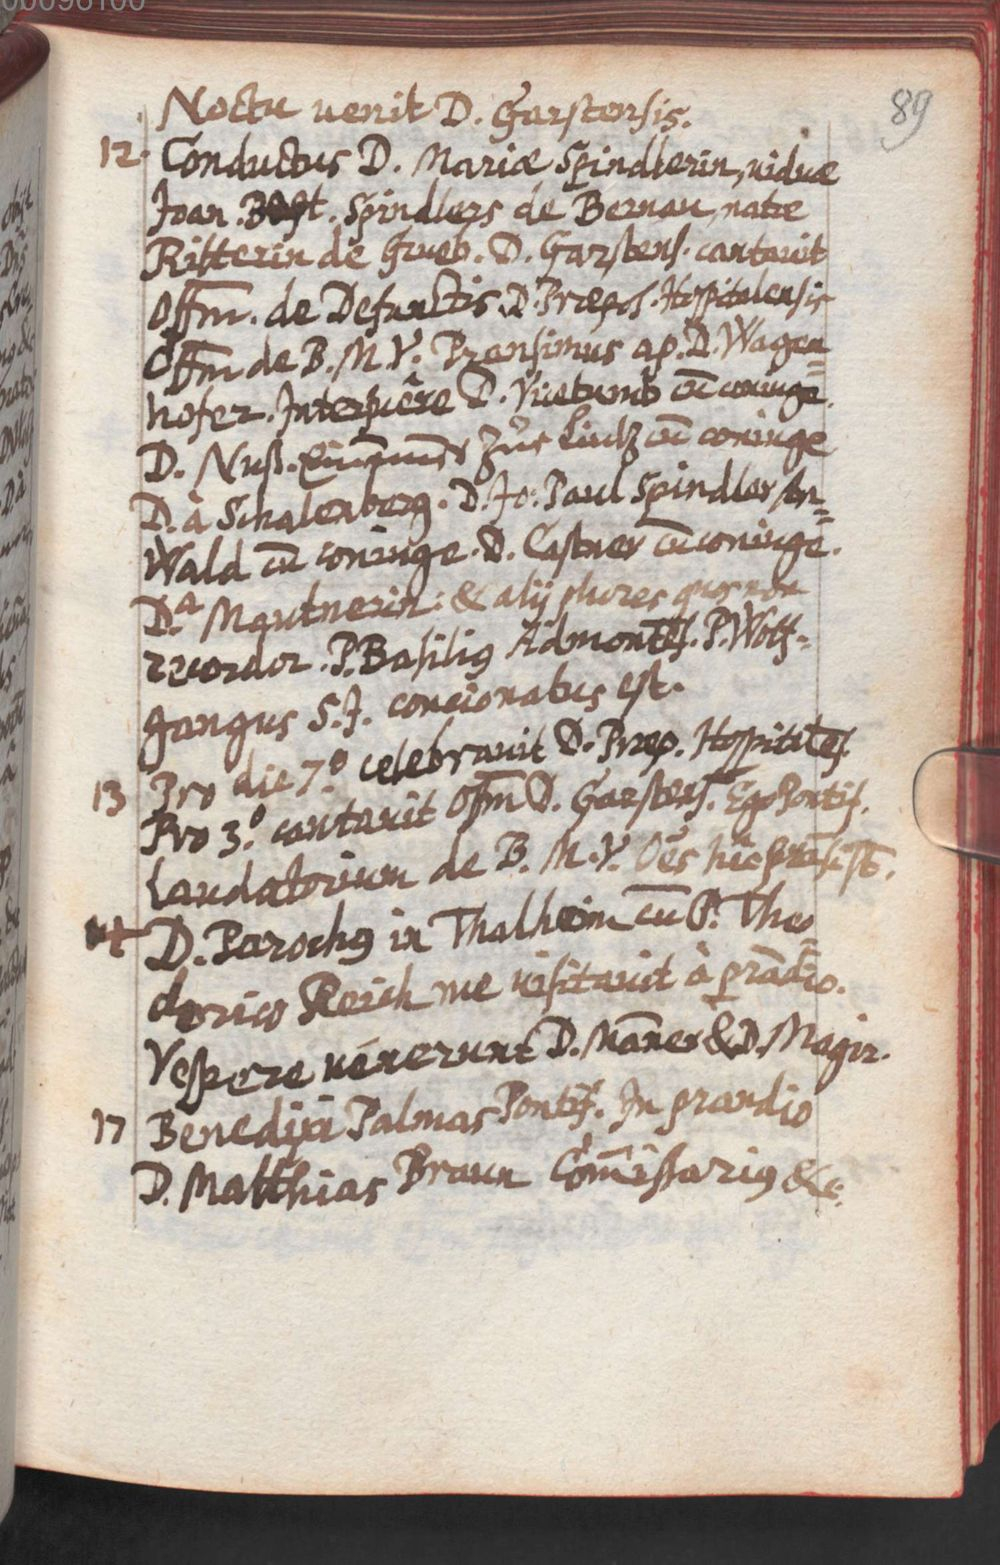 00096100
89
Noctu venit D. Garstensis.
12. Conductus D. Mariæ Spindlerin, viduæ
Joan. Bapt. Spindlers de Bernau, natæ
Ritterin de Grueb. D. Garstens. cantavit
Offm. de Defunctis. D. Præpos. Hospitalensis
Offm de B. M. V. Pransimus ap. D. Wagen=
hofer. Interfuêre D. cū coniuge.
D. Nuß. Zur Lindt cū coniuge
D. à Schalenberg. D. Jo: Paul Spindler Im=
Wald cū coniuge. D. Castner cū coniuge.
D.ª Mautnerin: & alij plures quos non
recordor. P. Basilig Admontēs. P. Wolf=
gangus S.J. concionatus est.
13 Pro die 7.º celebravit D. Præp. Hospitalēs.
Pro 3.º cantavit Offm D. Garstens. Ego Pontif.
Laudatorium de B. M. V. Oēs hîc
14 D. Parochg in Thalheim cū P. Theo
dorico Reich me visitavit à prādio.
Vespere venerunt D. Māner & D. Magir.
17 Benedixi Palmas Pontif. In prandio
D. Matthias Braun Cōmissarig &c.